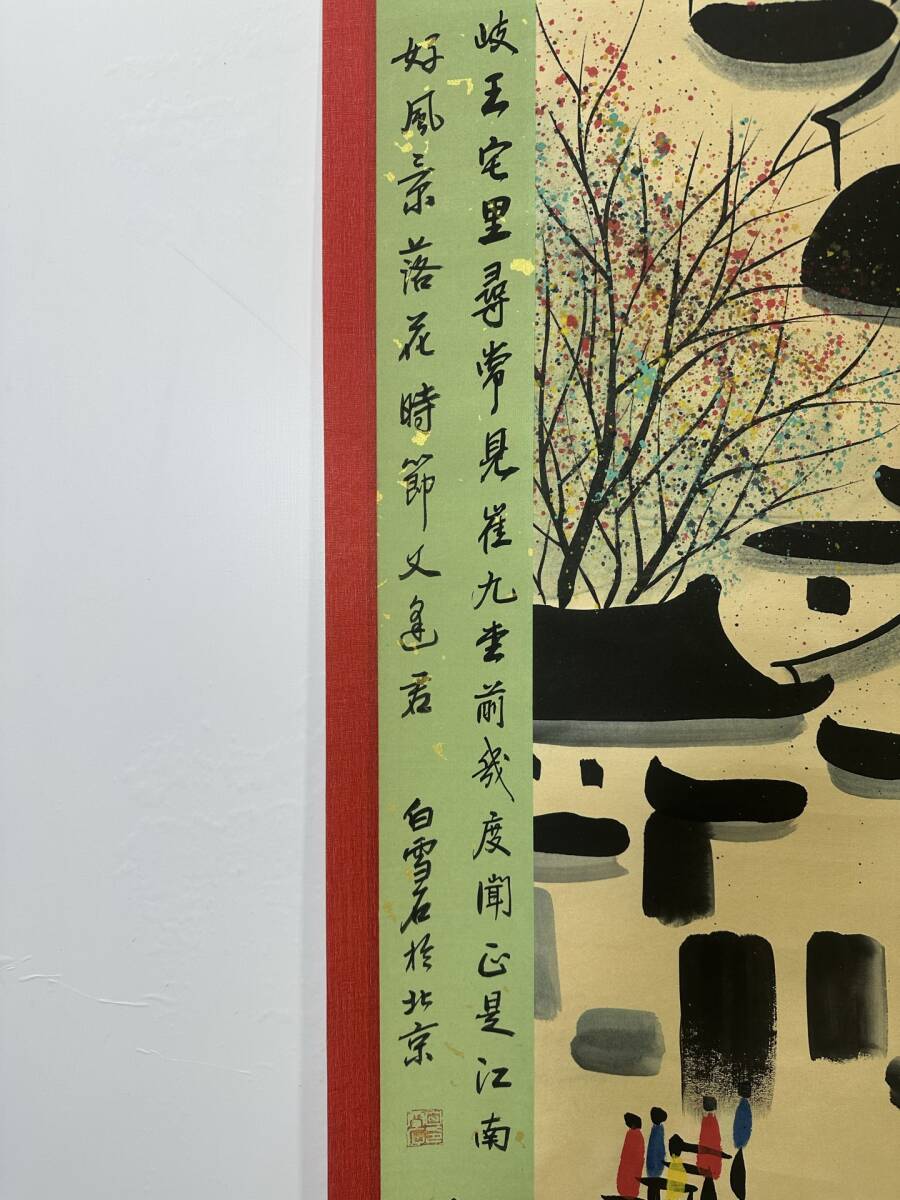 岐王宅里尋常見崔九堂前幾度聞正是江南
好風景落花時節又逢君 白雪石於北京